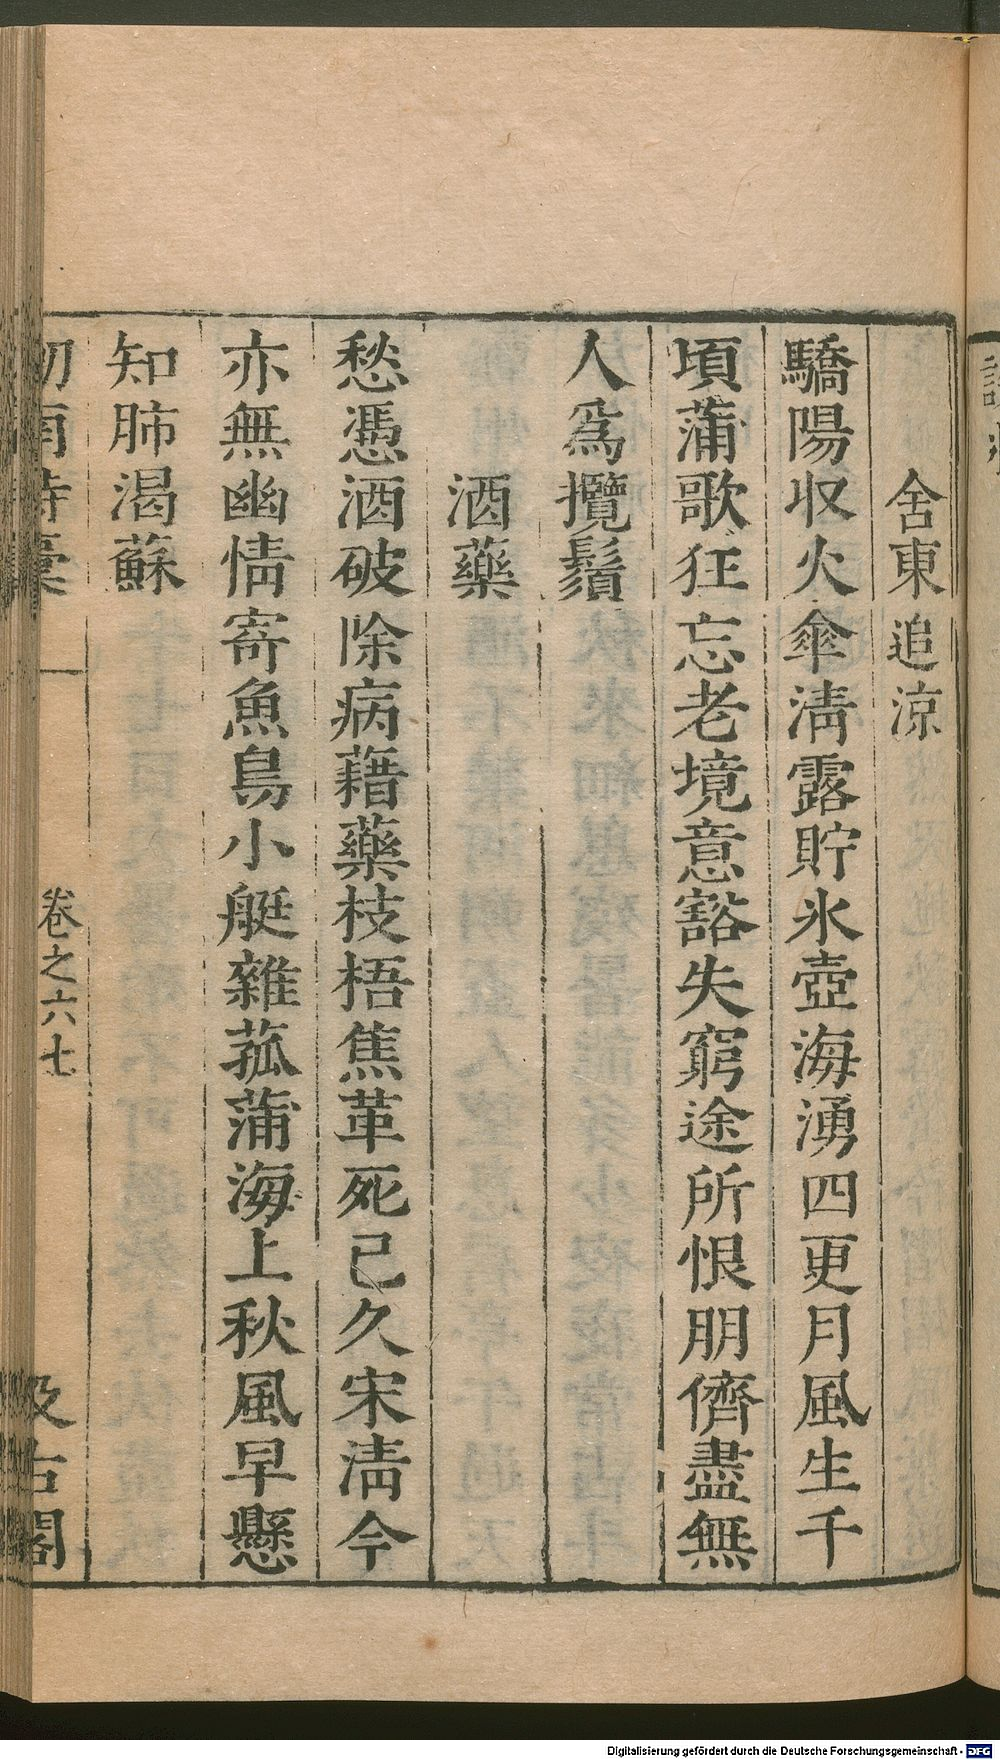 舍東追凉
驕陽収火傘淸露貯氷壺海湧四更月風生千
頃蒲歌狂忘老境意豁失窮途所恨朋儕盡無
人爲攬鬚
酒藥
愁憑酒破除病藉藥枝梧焦革死已久宋淸今
亦無幽情寄魚鳥小艇雜菰蒲海上秋風早懸
知肺渴蘇
卷之六 七
汲古閣
Digitalisierung gefördert durch die Deutsche Forschungsgemeinschaft - DFG